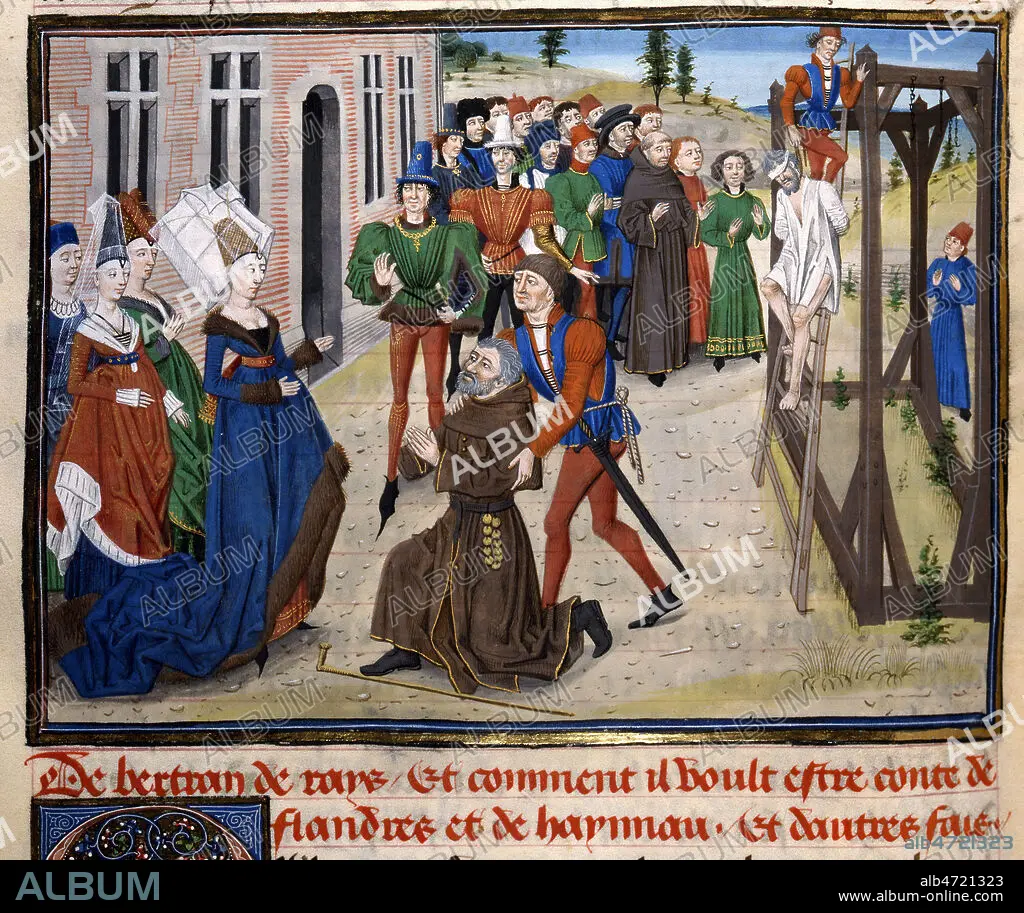 De bertran de rays / Et comment il voult estre conte de
flandres et de haynnau . Et dautres fais .
alb4721323
ALBUM
alb4721323
www.album-online.com